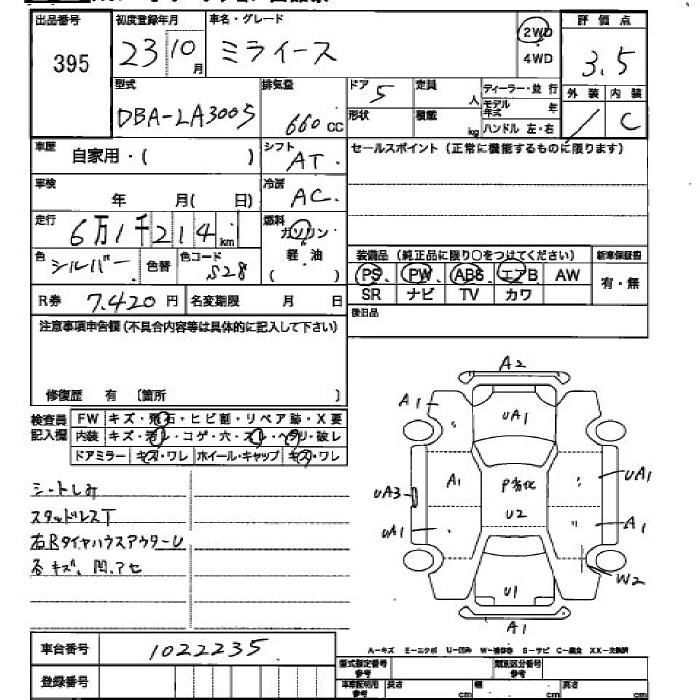 出品番号 初度登録年月 車名・グレード 評価点
395 23 10月 ミライース 2WD 4WD 3.5
型式 排気量 ドア 定員 ディーラー・並行 外装 内装
DBA-LA300S 660cc 5 人 モデル年式 年 / C
形状 積載 kg ハンドル 左・右
車歴 自家用・( ) シフト AT. セールスポイント (正常に機能するものに限ります)
車検 年 月( 日) 冷房 AC
走行 6万1千214km 燃料 ガソリン・軽油 ( )
色 シルバー 色替 色コード S28
装備品 (純正品に限り○をつけてください) 新車保証書
PS PW ABS エアB AW 有・無
SR ナビ TV カワ
R券 7.420円 名変期限 月 日 後日品
注意事項申告欄 (不具合内容等は具体的に記入して下さい)
修復歴 有 [箇所 ]
検査員記入欄 FW キズ・飛石・ヒビ割・リペア跡・X要
内装 キズ・汚レ・コゲ・穴・スレ・ヘタリ・破レ
ドアミラー キズ・ワレ ホイール・キャップ キズ・ワレ
シートしみ
スタッドレスT
右RタイヤハウスアウターU
各キズ、凹、アセ
A2
A1 UA1
A1 P劣化 UA1
UA3 U2
UA1 A1
U1 W2
A1
A-キズ E-エクボ U-凹み W-補修巻 S-サビ C-腐食 XX-交換済
車台番号 1022235
登録番号
型式指定番号 参考 類別区分番号 参考
車庫証明用 参考 長さ cm 幅 cm 高さ cm